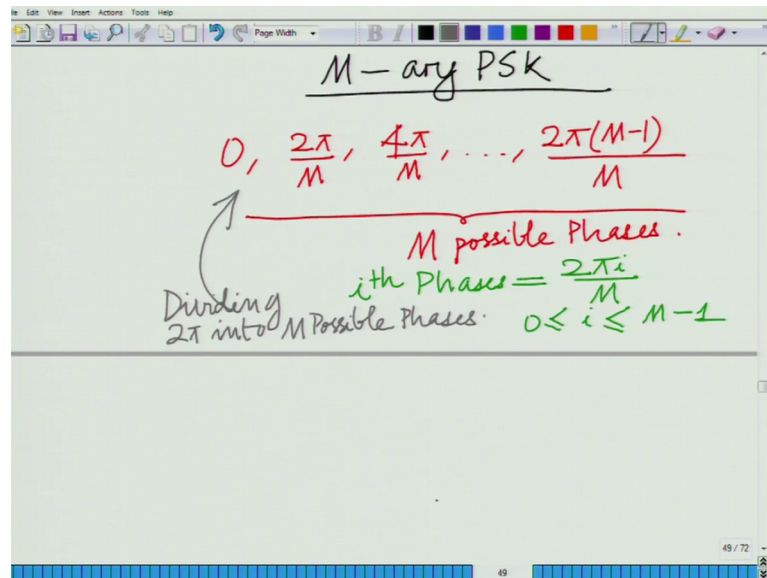 le Edit View Insert Actions Tools Help
Page Width B I
M-ary PSK
0, 2π/M, 4π/M, ..., 2π(M-1)/M
M possible Phases.
ith Phases = 2πi/M
0 ≤ i ≤ M-1
Dividing
2π into M Possible Phases.
49 / 72
49